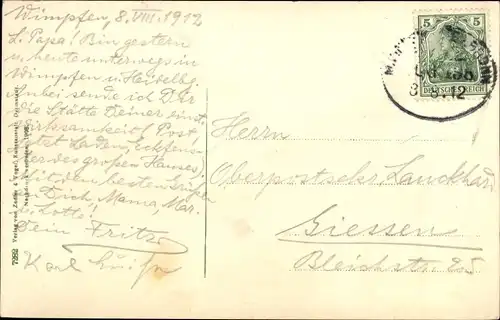 Wimpfen, 8. VIII. 1912
L. Papa! Bin gestern
u. heute unterwegs in
Wimpfen u. Heidelbg.
anbei sende ich Dir
die Stätte Deiner einst.
Wirksamkeit! Post
jetzt Laden, Eckfens-
ter des großen Hauses,
Mit den besten Grüßen
an Dich, Mama, Mar.
u. Lotte!
Dein Fritz
Karl
5
DEUTSCHES REICH
8 8 12
Herrn
Oberpostsekr. Lauckhard
Giessen
Bleichstr. 25
7382 Verlag von